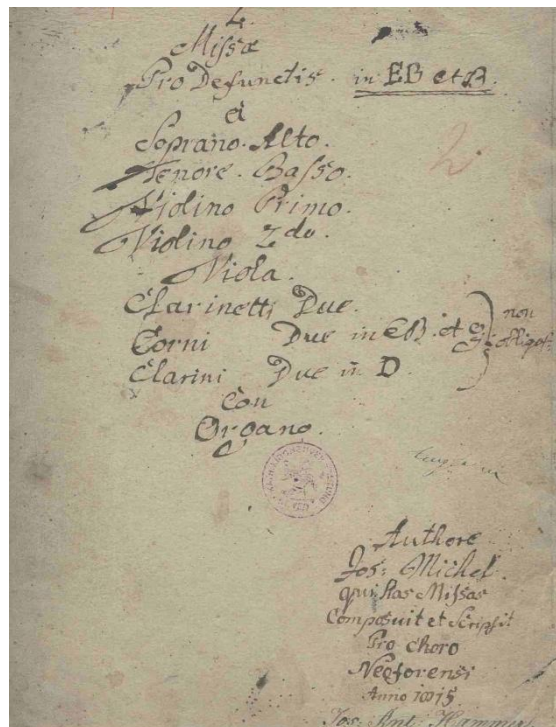 4.
Missæ
Pro Defunctis. in EB et B.
à
Soprano. Alto.
Tenore. Basso.
Violino Primo.
Violino 2do.
Viola.
Clarinetti Due.
Corni Due in EB. et
non obligat:
Clarini Due in D.
Con
Organo.
2.
Authore
Jos: Michel.
qui has Missas
Composuit et Scripsit
Pro Choro
Neoforensi
Anno 1815
Jos: Ant: Hammer